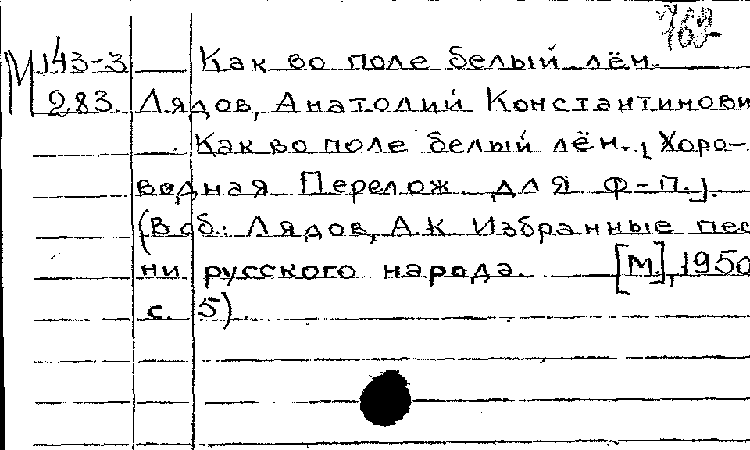 769
М 143-3 Как во поле белый лён.
283. Лядов, Анатолий Константинови
Как во поле белый лён. [Хоро-
водная Перелож. для ф-п.].
(В сб.: Лядов, А.К Избранные пес
ни русского народа. [М], 1950
с. 5).